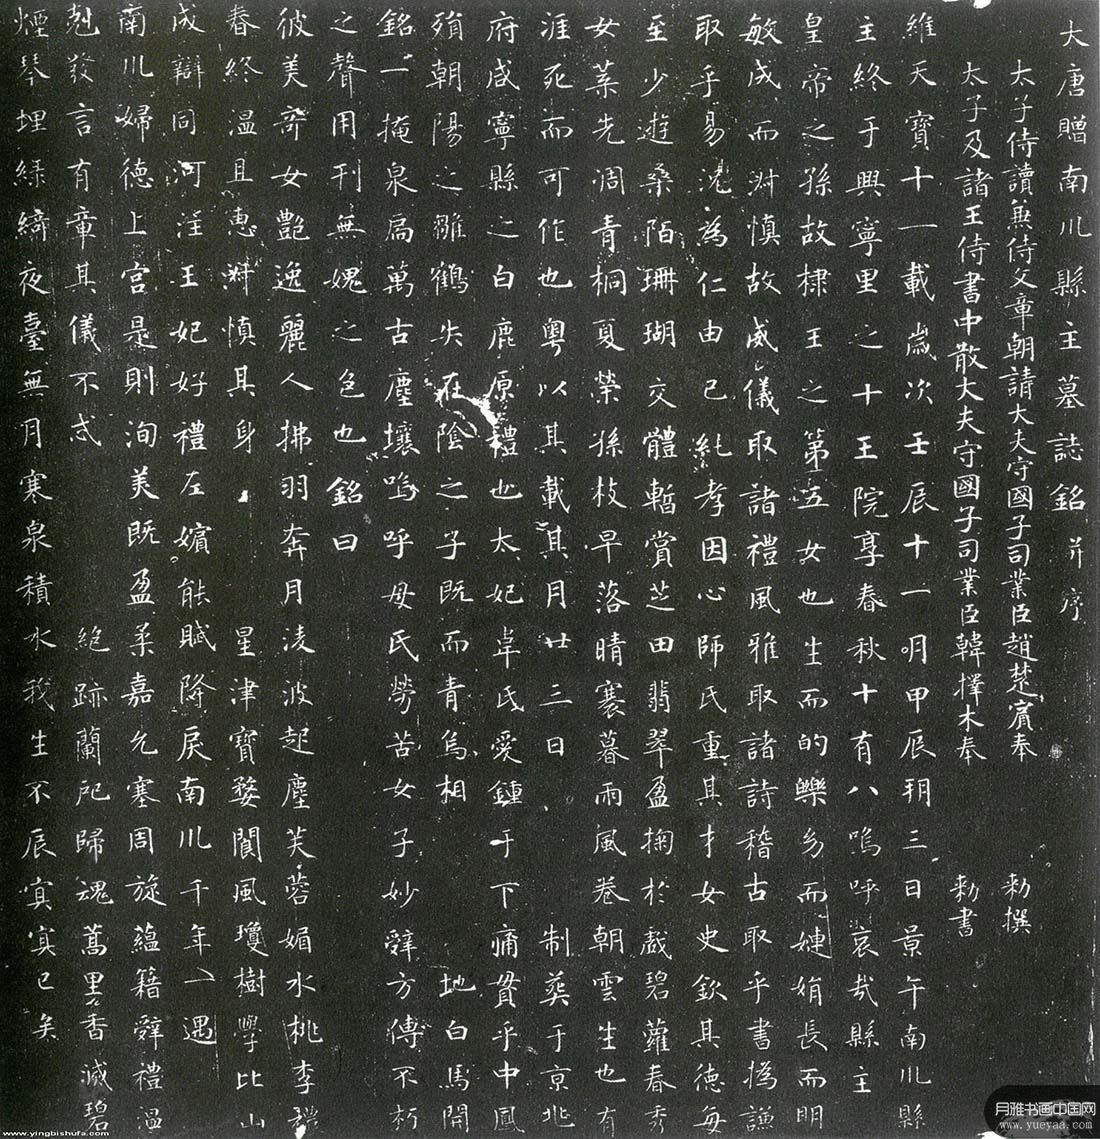 大唐贈南川縣主墓誌銘并序
太子侍讀兼侍文章朝請大夫守國子司業臣趙楚賓奉 勅撰
太子及諸王侍書中散大夫守國子司業臣韓擇木奉 勅書
維天寶十一載歲次壬辰十一月甲辰朔三日景午南川縣
主終于興寧里之十王院享春秋十有八嗚呼哀哉縣主
皇帝之孫故棣王之第五女也生而的皪幼而婕娟長而明
敏成而淑慎故威儀取諸禮風雅取諸詩稽古取乎書撝謙
取乎易況為仁由己純孝因心師氏重其才女史欽其德每
至少遊桑陌珊瑚交體暫賞芝田翡翠盈掬於戲碧蘿春秀
女蘂先凋青桐夏榮孫枝早落晴褰暮雨風卷朝雲生也有
涯死而可作也粵以其載其月廿三日 制葬于京兆
府咸寧縣之白鹿原禮也太妃韋氏愛鍾于下痛貫乎中鳳
殞朝陽之雛鶴失在陰之子既而青烏相 地白馬開
銘一掩泉扃萬古塵壤嗚呼母氏勞苦女子妙辭方傳不朽
之聲用刊無媿之色也銘曰
彼美奇女艷逸麗人拂羽奔月淩波起塵芙蓉媚水桃李
春終溫且惠淑慎其身 星津寶婺閬風瓊樹學比山
成辯同河注王妃好禮左嬪能賦降戾南川千年一遇
南川婦德上宮是則洵美既盈柔嘉允塞周旋蘊籍辭禮溫
剋發言有章其儀不忒 絕跡蘭戺歸魂蒿里香滅碧
煙琴埋綠綺夜臺無月寒泉積水我生不辰寘寘已矣
www.yingbishufa.com
月雅书画中国网
www.yueyaa.com